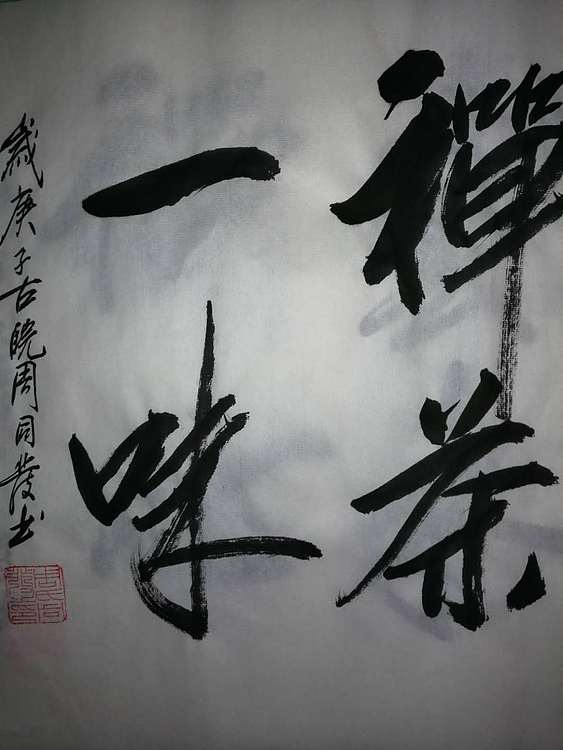 禪茶
一味
歲庚子古皖周同發书